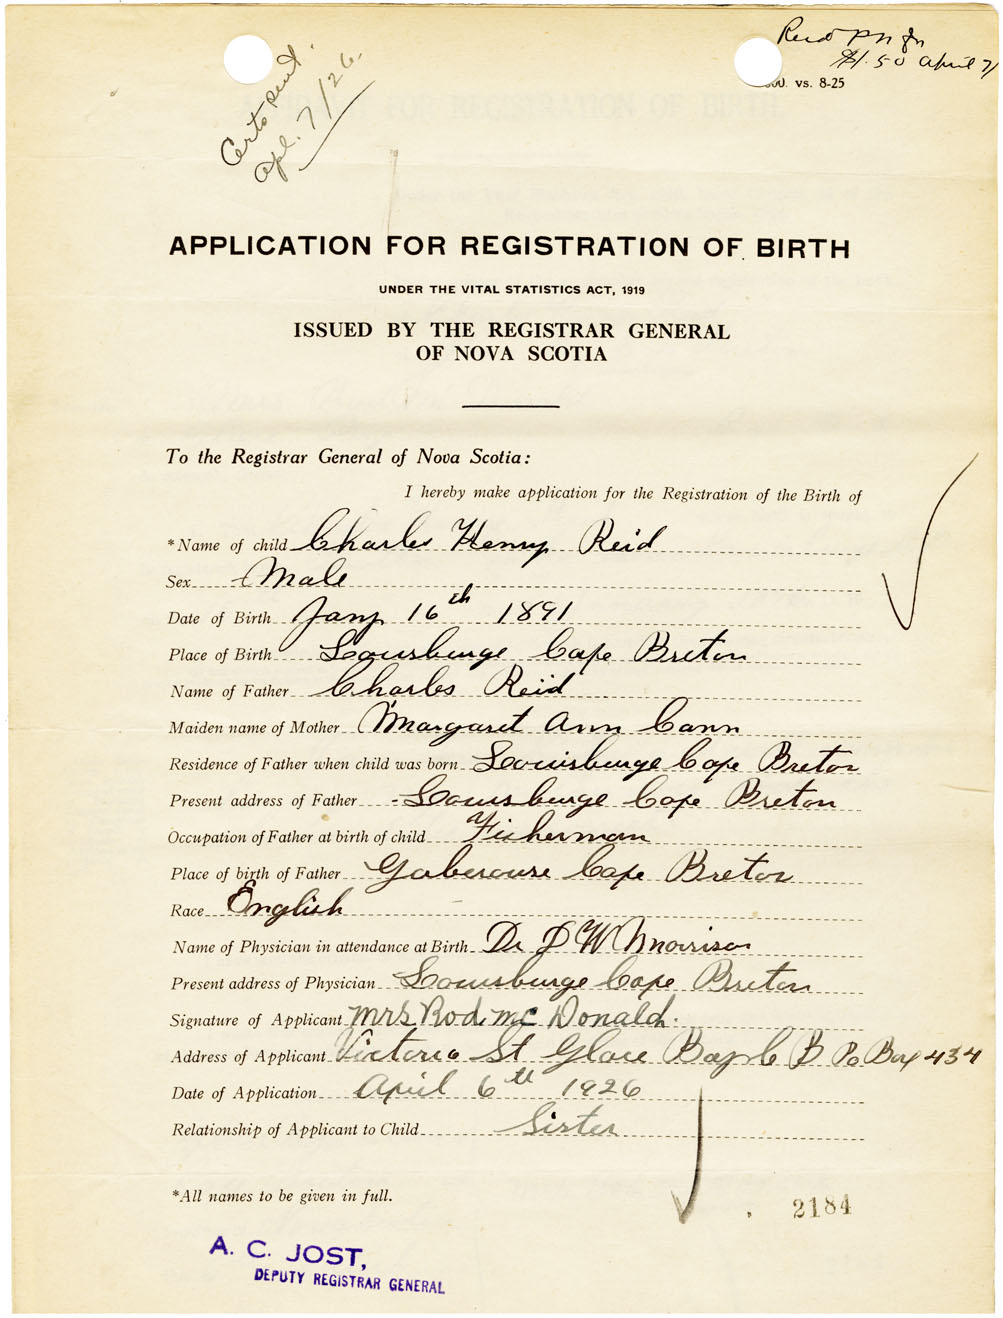 Recd PN for
$1.50 April 7/
00. vs. 8-25
Certs sent.
Apl. 7/26.
APPLICATION FOR REGISTRATION OF BIRTH
UNDER THE VITAL STATISTICS ACT, 1919
ISSUED BY THE REGISTRAR GENERAL
OF NOVA SCOTIA
To the Registrar General of Nova Scotia:
I hereby make application for the Registration of the Birth of
*Name of child Charles Henry Reid
Sex Male
Date of Birth Jany 16th 1891
Place of Birth Louisburge Cape Breton
Name of Father Charles Reid
Maiden name of Mother Margaret Ann Cann
Residence of Father when child was born Louisburge Cape Breton
Present address of Father Louisburge Cape Breton
Occupation of Father at birth of child Fisherman
Place of birth of Father Gaberouse Cape Breton
Race English
Name of Physician in attendance at Birth Dr D W Morrison
Present address of Physician Louisburge Cape Breton
Signature of Applicant Mrs Rod. Mc Donald.
Address of Applicant Victoria St Glace Bay C B Po Box 434
Date of Application April 6th 1926
Relationship of Applicant to Child Sister
*All names to be given in full.
2184
A. C. JOST,
DEPUTY REGISTRAR GENERAL